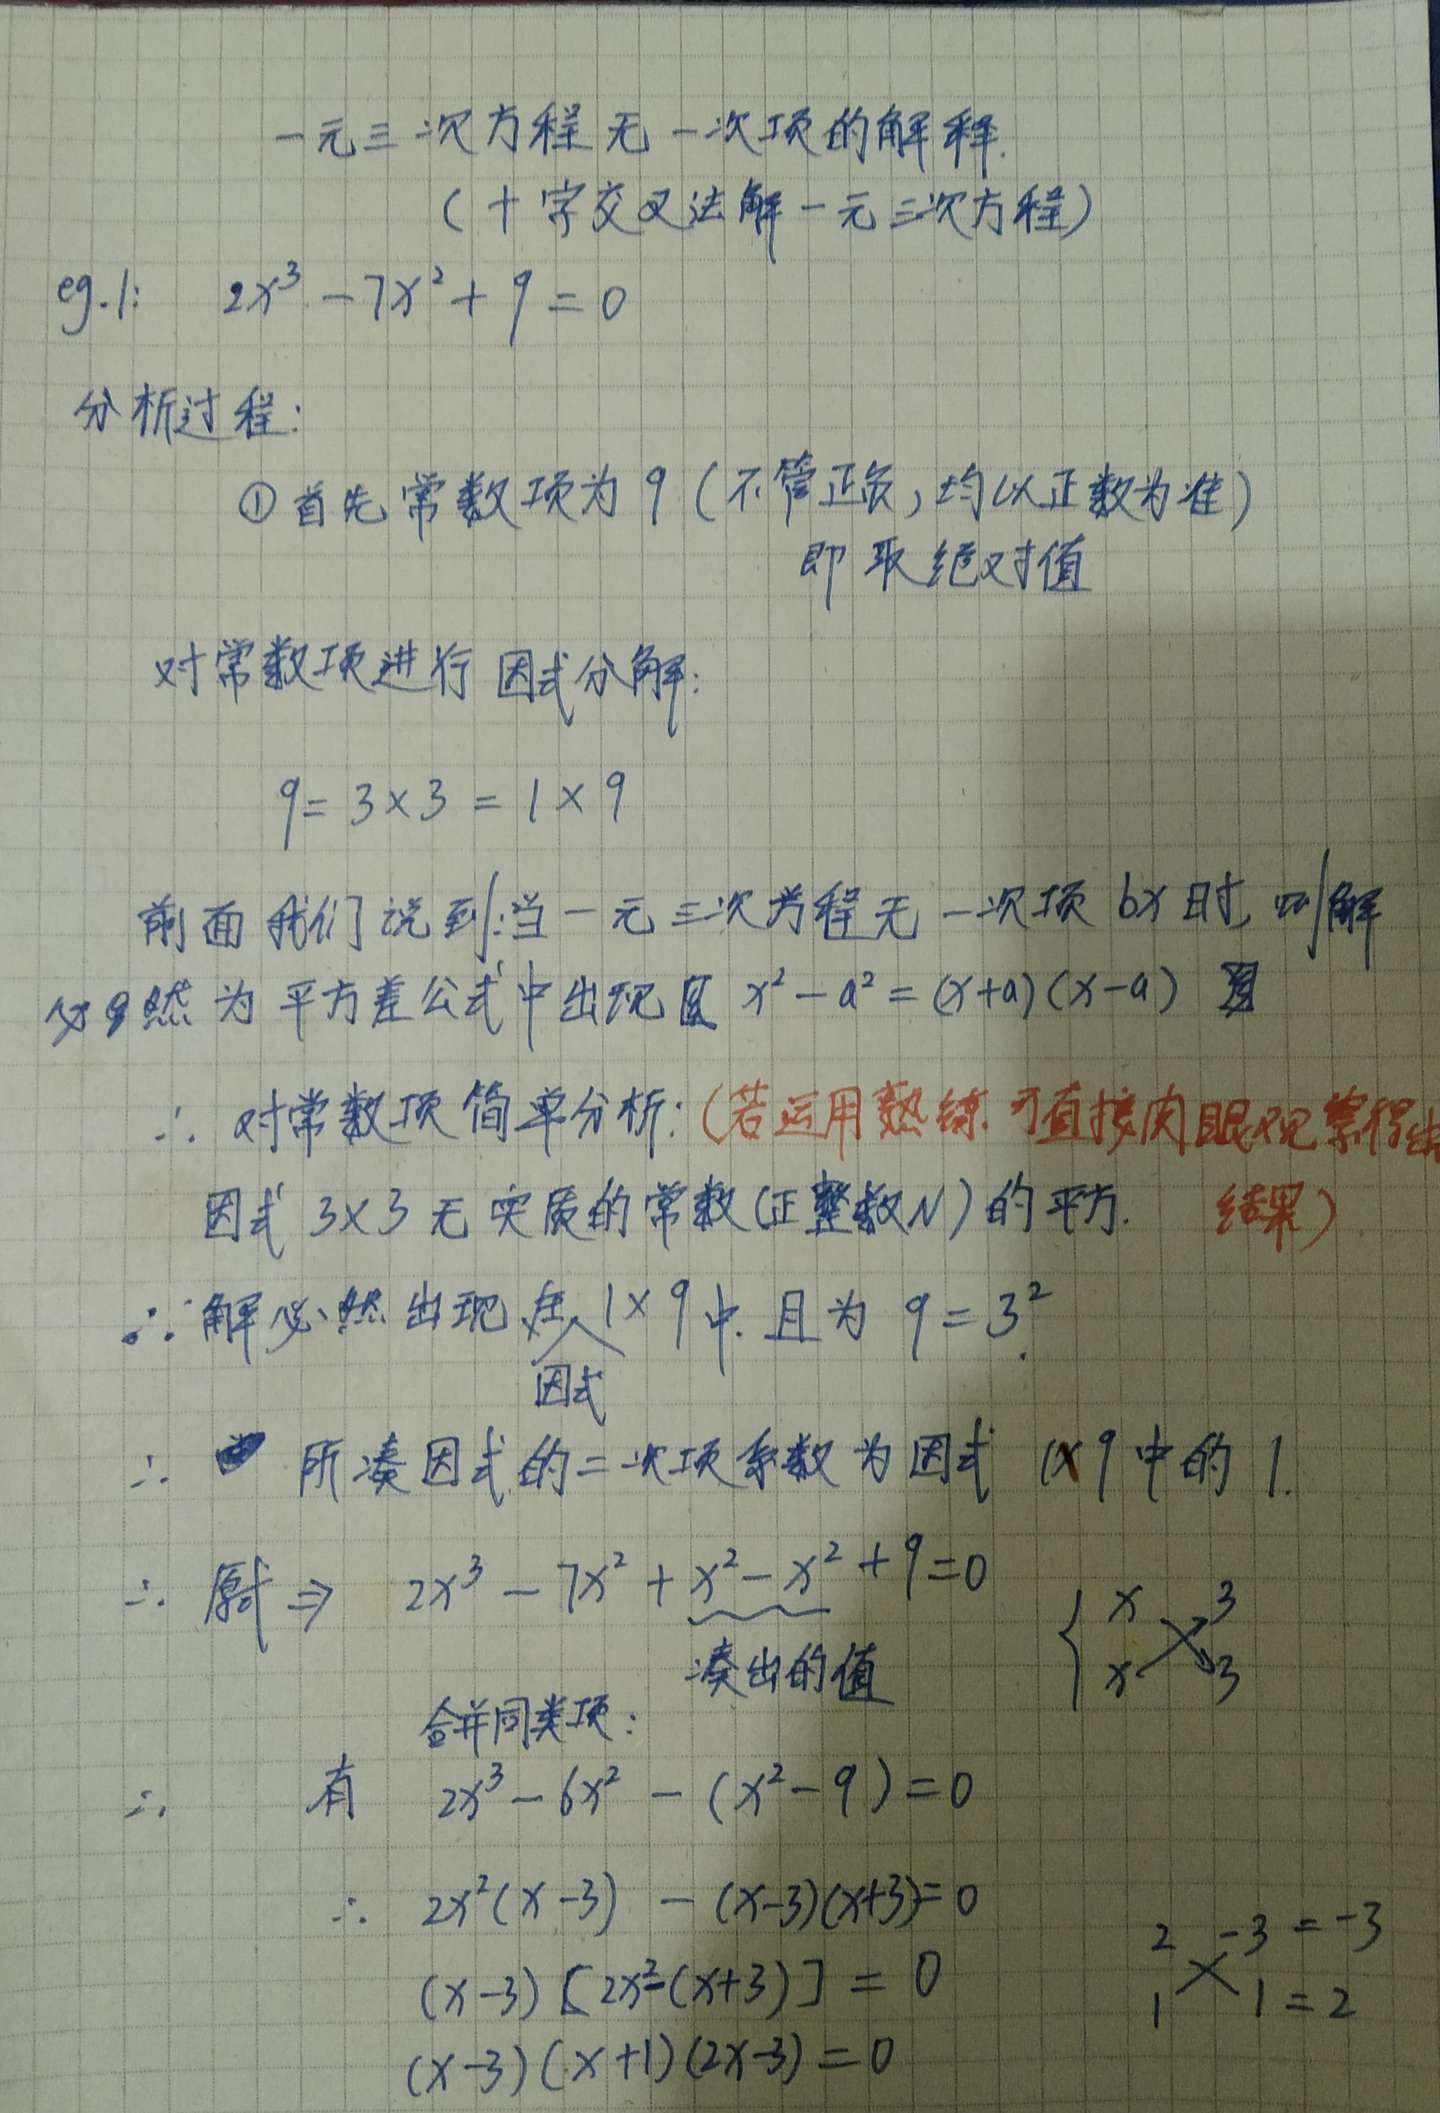 一元三次方程无一次项的解释.
(十字交叉法解一元三次方程)
eg.1: 2x³ - 7x² + 9 = 0
分析过程:
① 首先常数项为9 (不管正负,均以正数为准)
即取绝对值
对常数项进行因式分解:
9 = 3×3 = 1×9
前面我们说到:当一元三次方程无一次项bx时,则解
必然为平方差公式中出现 x² - a² = (x+a)(x-a)
∴ 对常数项简单分析: (若运用熟练.可直接肉眼观察得出
因式 3×3 无实质的常数(正整数N)的平方. 结果)
∴ 解必然出现在 1×9 中.且为 9 = 3².
因式
∴ 所凑因式的二次项系数为因式 1×9 中的 1.
∴ 原式 ⇒ 2x³ - 7x² + x² - x² + 9 = 0
凑出的值
x 3
x 3
合并同类项:
∴ 有 2x³ - 6x² - (x² - 9) = 0
∴ 2x²(x-3) - (x-3)(x+3) = 0
2 -3 = -3
1 1 = 2
(x-3)[2x²-(x+3)] = 0
(x-3)(x+1)(2x-3) = 0